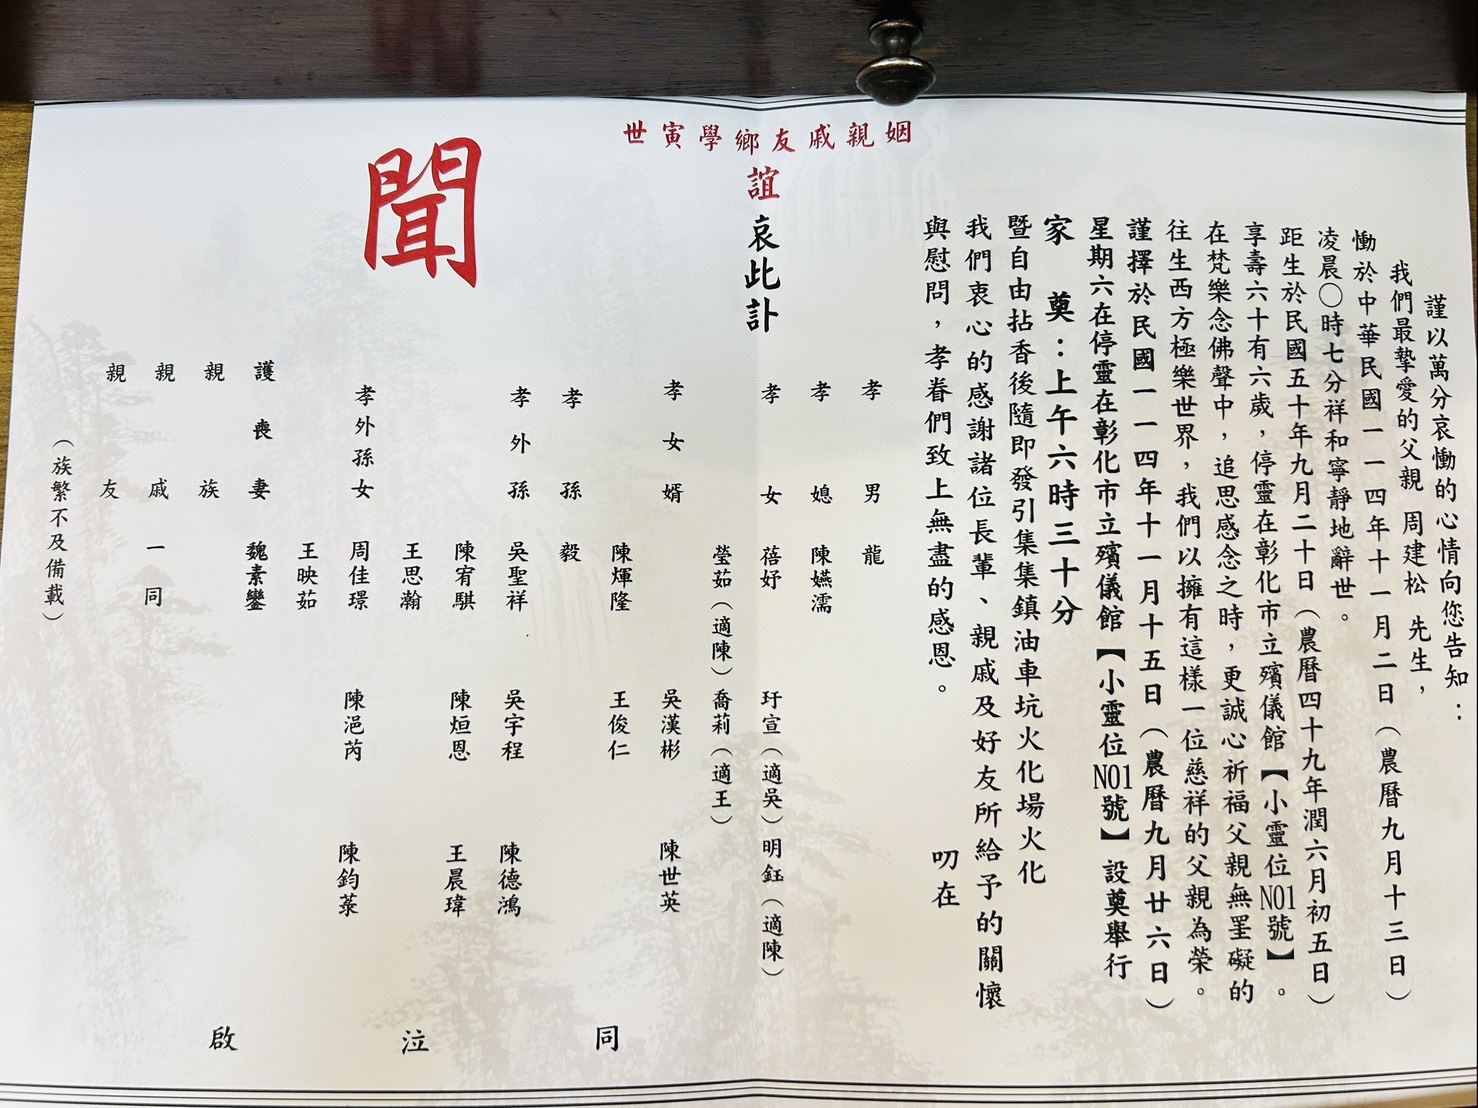 謹以萬分哀慟的心情向您告知：
我們最摯愛的父親 周建松 先生，
慟於中華民國一一四年十一月二日（農曆九月十三日）
凌晨〇時七分祥和寧靜地辭世。
距生於民國五十年九月二十日（農曆四十九年潤六月初五日）
享壽六十有六歲，停靈在彰化市立殯儀館【小靈位NO1號】。
在梵樂念佛聲中，追思感念之時，更誠心祈福父親無罣礙的
往生西方極樂世界，我們以擁有這樣一位慈祥的父親為榮。
謹擇於民國一一四年十一月十五日（農曆九月廿六日）
星期六在停靈在彰化市立殯儀館【小靈位NO1號】設奠舉行
家 奠：上午六時三十分
暨自由拈香後隨即發引集集鎮油車坑火化場火化
我們衷心的感謝諸位長輩、親戚及好友所給予的關懷
與慰問，孝眷們致上無盡的感恩。 叨在
姻親戚友鄉學寅世
誼 哀此訃
聞
孝男 龍
孝媳 陳嬿濡
孝女 蓓妤 玗宣（適吳） 明鈺（適陳）
瑩茹（適陳） 喬莉（適王）
孝女婿 吳漢彬 陳世英
陳煇隆 王俊仁
孝孫 毅
孝外孫 吳聖祥 吳宇程 陳德鴻
陳宥騏 陳烜恩 王晨瑋
王思瀚
孝外孫女 周佳璟 陳浥芮 陳鈞蓁
王映茹
護喪妻 魏素鑾
親族
親戚一同
親友
（族繁不及備載）
同 泣 啟